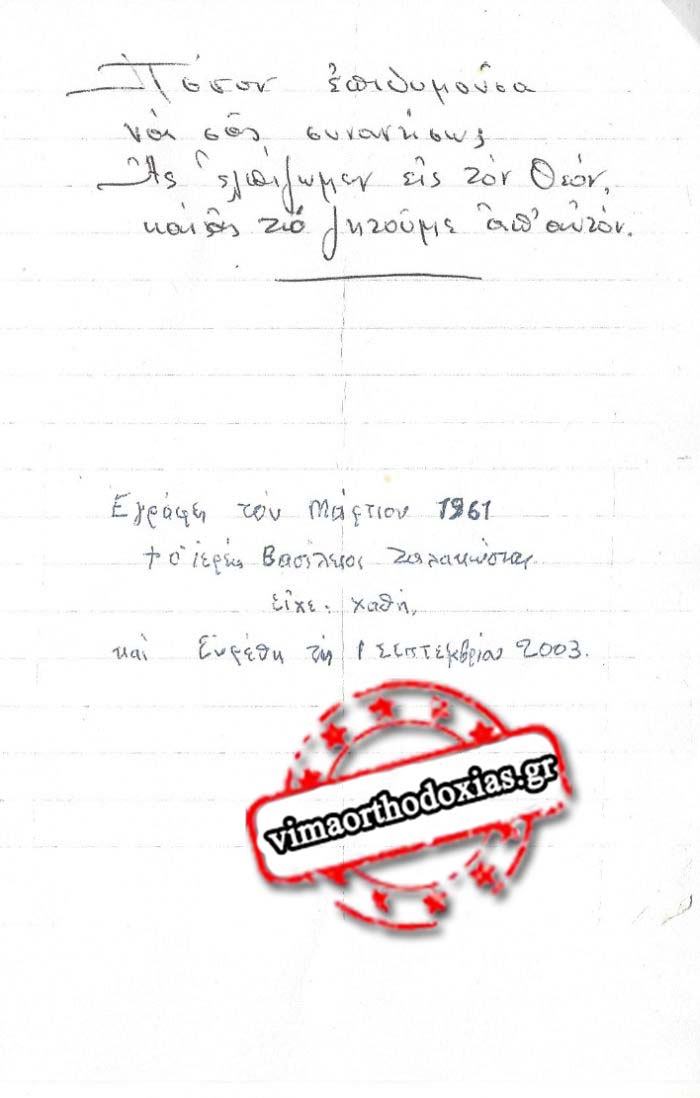 Πόσον ἐπιθυμοῦσα
νά σᾶς συναντήσω,
Ἄς ἐλπίζωμεν εἰς τὸν Θεόν,
καὶ ἄς τὸ ζητοῦμε ἀπ' αὐτόν.
Ἐγράφη τόν Μάρτιον 1961
† ὁ ἱερεύς Βασίλειος
εἶχε. χαθῆ,
καὶ Εὑρέθη τῇ 1 Σεπτεμβρίου 2003.
vimaorthodoxias.gr